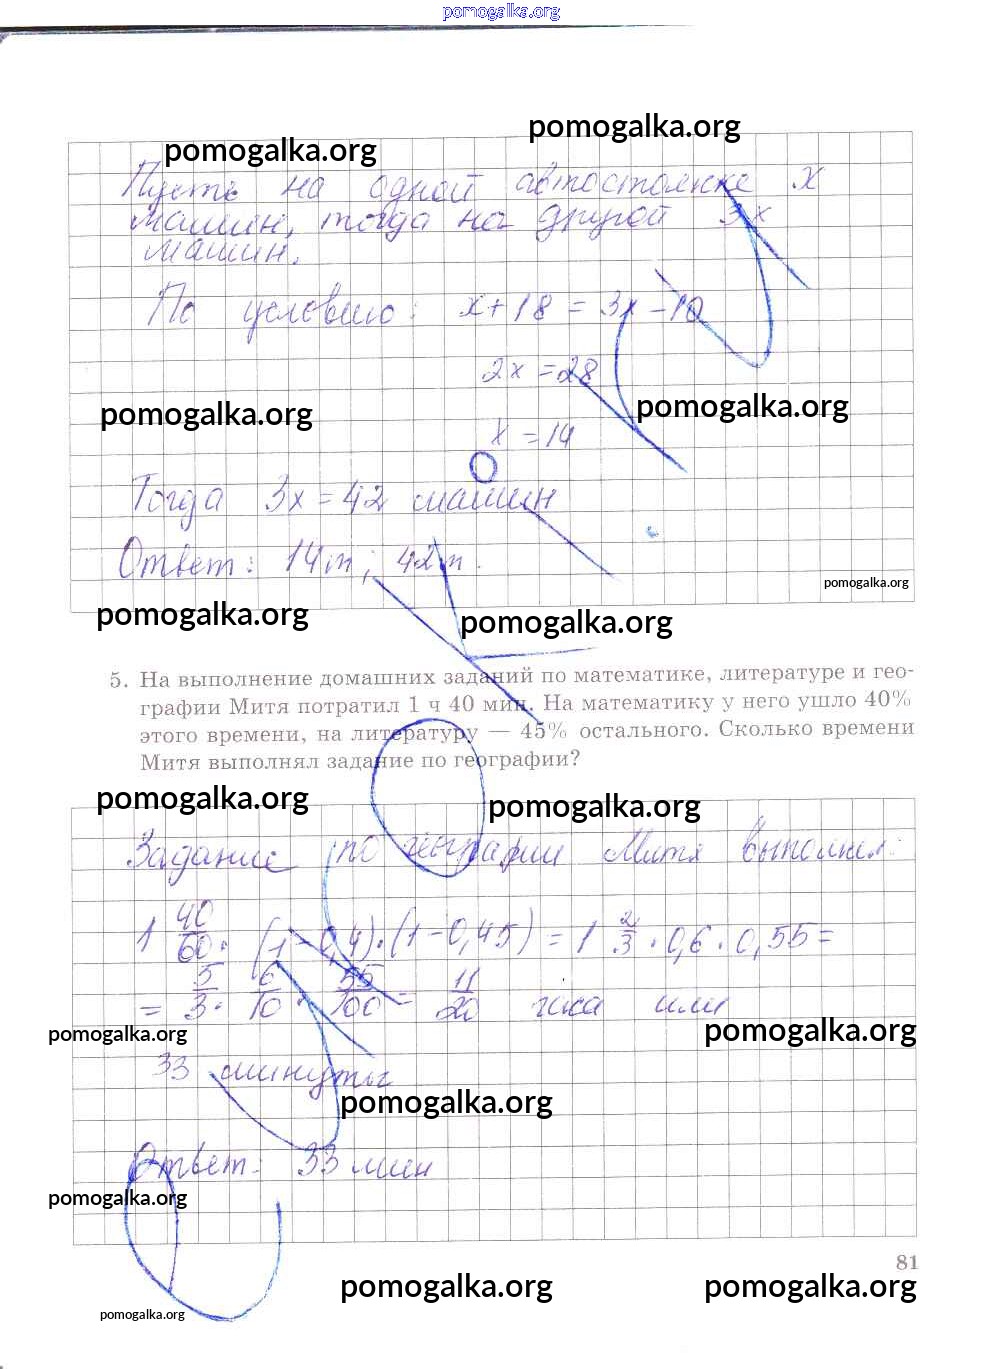 pomogalka.org
pomogalka.org
pomogalka.org
Пусть на одной автостоянке x
машин, тогда на другой 3x
машин.
По условию: x + 18 = 3x - 10
2x = 28
pomogalka.org
pomogalka.org
x = 14
Тогда 3x = 42 машин
Ответ: 14 м; 42 м.
pomogalka.org
pomogalka.org
pomogalka.org
5. На выполнение домашних заданий по математике, литературе и гео-
графии Митя потратил 1 ч 40 мин. На математику у него ушло 40%
этого времени, на литературу — 45% остального. Сколько времени
Митя выполнял задание по географии?
pomogalka.org
pomogalka.org
Задание по географии Митя выполнил:
1 40/60 · (1 - 0,4) · (1 - 0,45) = 1 2/3 · 0,6 · 0,55 =
= 5/3 · 6/10 · 55/100 = 11/20 часа или
pomogalka.org
pomogalka.org
33 минуты
pomogalka.org
Ответ: 33 мин
pomogalka.org
81
pomogalka.org
pomogalka.org
pomogalka.org